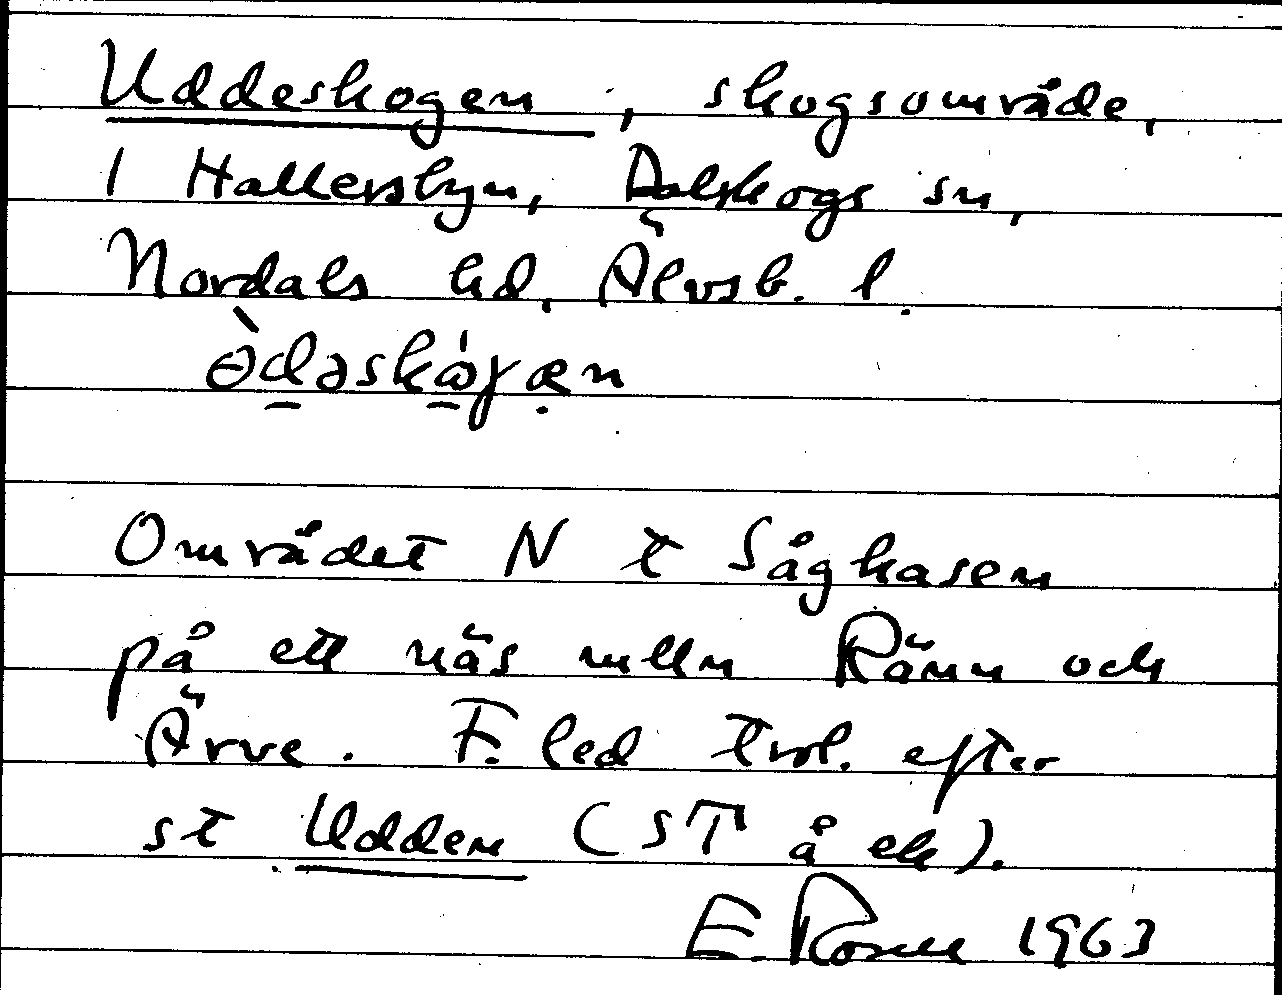 Uddeskogen, skogsområde,
1 Hallersbyn, Dalskogs sn,
Nordals hd, Älvsb. l.
Området N t Sågkasen
på ett näs mlln Ränn och
Ärve. F. led trol. efter
st Udden (ST å ek).
E. Rosell 1963